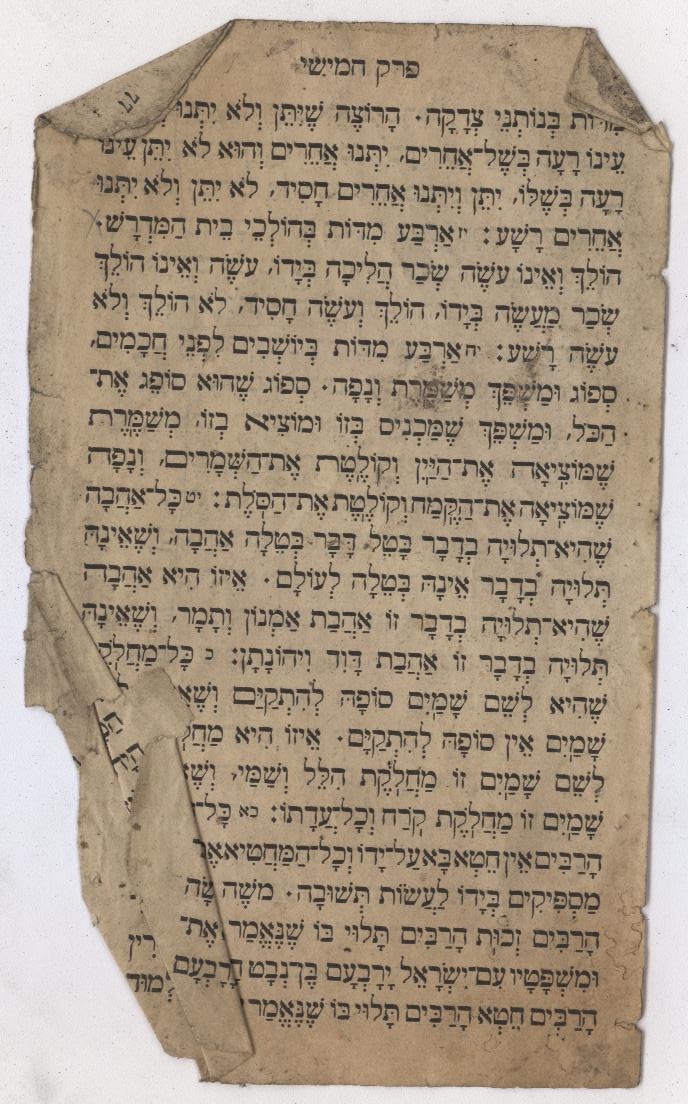 פרק חמישי
מִדּוֹת בְּנוֹתְנֵי צְדָקָה. הָרוֹצֶה שֶׁיִּתֵּן וְלֹא יִתְּנוּ
עֵינוֹ רָעָה בְּשֶׁל־אֲחֵרִים, יִתְּנוּ אֲחֵרִים וְהוּא לֹא יִתֵּן עֵינוֹ
רָעָה בְּשֶׁלּוֹ, יִתֵּן וְיִתְּנוּ אֲחֵרִים חָסִיד, לֹא יִתֵּן וְלֹא יִתְּנוּ
אֲחֵרִים רָשָׁע: יז אַרְבַּע מִדּוֹת בְּהוֹלְכֵי בֵית הַמִּדְרָשׁ.
הוֹלֵךְ וְאֵינוֹ עוֹשֶׂה שְׂכַר הֲלִיכָה בְּיָדוֹ, עֹשֶׂה וְאֵינוֹ הוֹלֵךְ
שְׂכַר מַעֲשֶׂה בְּיָדוֹ, הוֹלֵךְ וְעֹשֶׂה חָסִיד, לֹא הוֹלֵךְ וְלֹא
עֹשֶׂה רָשָׁע: יח אַרְבַּע מִדּוֹת בְּיוֹשְׁבִים לִפְנֵי חֲכָמִים,
סְפוֹג וּמַשְׁפֵּךְ מְשַׁמֶּרֶת וְנָפָה. סְפוֹג שֶׁהוּא סוֹפֵג אֶת־
הַכֹּל, וּמַשְׁפֵּךְ שֶׁמַּכְנִיס בְּזוֹ וּמוֹצִיא בְזוֹ, מְשַׁמֶּרֶת
שֶׁמּוֹצִיאָה אֶת־הַיַּיִן וְקוֹלֶטֶת אֶת־הַשְּׁמָרִים, וְנָפָה
שֶׁמּוֹצִיאָה אֶת־הַקֶּמַח וְקוֹלֶטֶת אֶת־הַסֹּלֶת: יט כָּל־אַהֲבָה
שֶׁהִיא־תְלוּיָה בְדָבָר בָּטֵל דָּבָר בְּטֵלָה אַהֲבָה, וְשֶׁאֵינָהּ
תְּלוּיָה בְדָבָר אֵינָהּ בְּטֵלָה לְעוֹלָם. אֵיזוֹ הִיא אַהֲבָה
שֶׁהִיא־תְלוּיָה בְדָבָר זוֹ אַהֲבַת אַמְנוֹן וְתָמָר, וְשֶׁאֵינָהּ
תְּלוּיָה בְדָבָר זוֹ אַהֲבַת דָּוִד וִיהוֹנָתָן: כ כָּל־מַחֲלֹקֶת
שֶׁהִיא לְשֵׁם שָׁמַיִם סוֹפָהּ לְהִתְקַיֵּם וְשֶׁאֵ
שָׁמַיִם אֵין סוֹפָהּ לְהִתְקַיֵּם. אֵיזוֹ הִיא מַחֲלֹ
לְשֵׁם שָׁמַיִם זוֹ מַחֲלֹקֶת הִלֵּל וְשַׁמַּי, וְשֶׁאֵ
שָׁמַיִם זוֹ מַחֲלֹקֶת קֹרַח וְכָל־עֲדָתוֹ: כא כָּל־
הָרַבִּים אֵין חֵטְא בָּא עַל־יָדוֹ וְכָל־הַמַּחֲטִיא אֶ
מַסְפִּיקִים בְּיָדוֹ לַעֲשׂוֹת תְּשׁוּבָה. משֶׁה
הָרַבִּים זְכוּת הָרַבִּים תָּלוּי בּוֹ שֶׁנֶּאֱמַר
וּמִשְׁפָּטָיו עִם־יִשְׂרָאֵל יָרָבְעָם בֶּן־נְבָט
הָרַבִּים חֵטְא הָרַבִּים תָּלוּי בּוֹ שֶׁנֶּאֱמַר